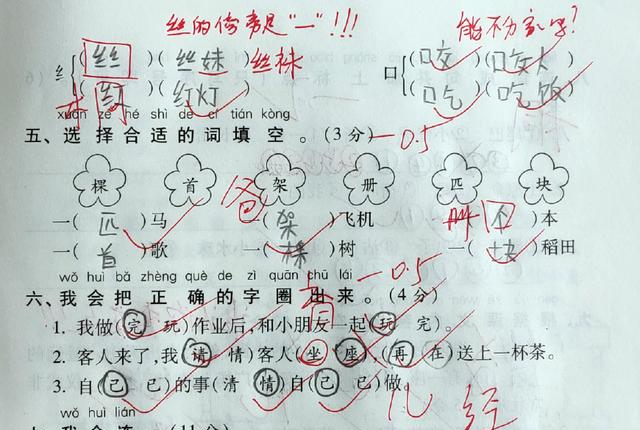 丝的偏旁是“一”!!!
能不分家吗?
丝 (丝) (丝妹) 丝袜 口 (口交) (口交大)
(红) (红灯) (口乞) (吃饭)
xuǎn zé hé shì de cí tián kòng
五、选择合适的词填空。(3分) -0.5
棵 首 架 册 匹 块
一(匹)马 一(架)飞机 一(不)本 册
一(首)歌 一(棵)树 一(块)稻田
wǒ huì bǎ zhèng què de zì quān chū lái -0.5
六、我会把正确的字圈出来。(4分)
1. 我做(完 玩)作业后,和小朋友一起(玩 完)。
2. 客人来了,我(请 情)客人(坐 座),(再 在)送上一杯茶。
3. 自(己 已)的事(清 情)自(己 已)做。
wǒ huì lián